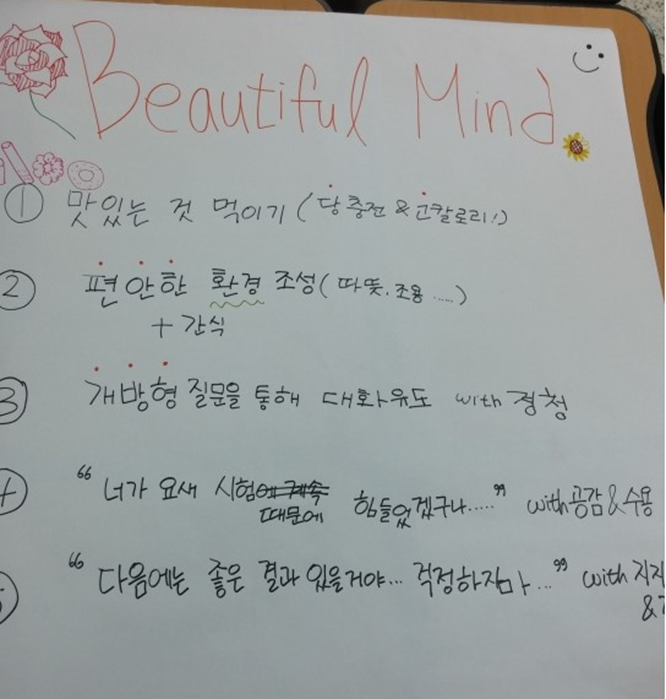 Beautiful Mind
① 맛있는 것 먹이기 (당 충전 & 고칼로리!)
② 편안한 환경 조성 (따뜻, 조용 .....)
+ 간식
③ 개방형 질문을 통해 대화유도 with 경청
④ “너가 요새 시험 때문에 힘들었겠구나.....” with 공감 & 수용
“다음에는 좋은 결과 있을거야... 걱정하지마...” with 지지
&